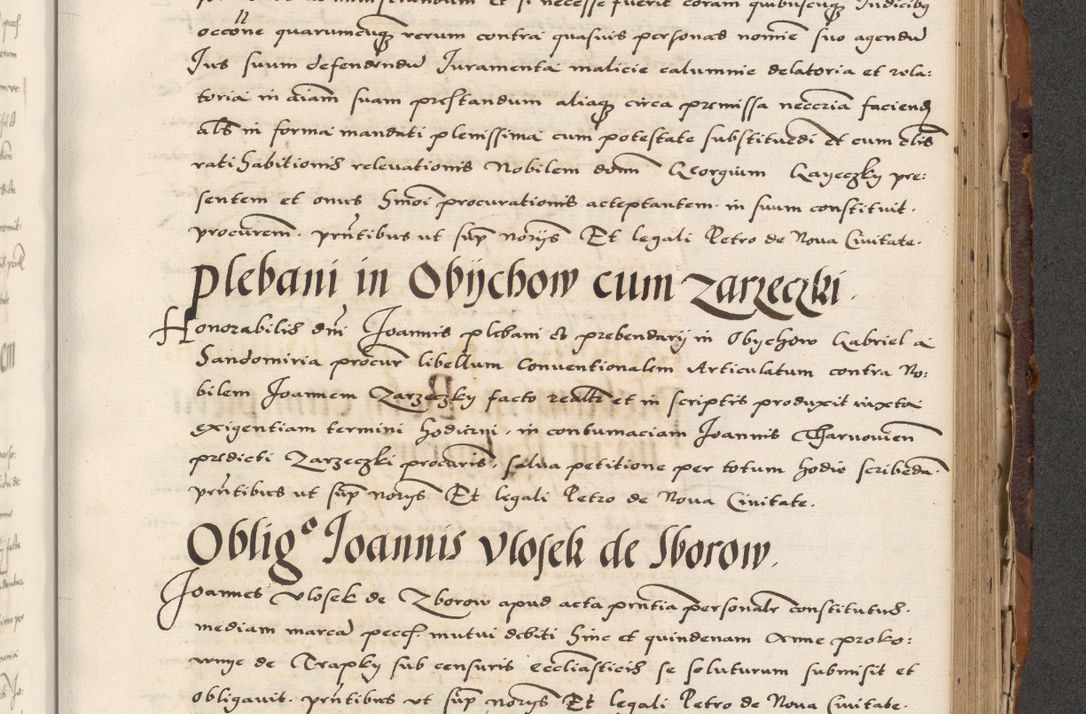 occone quarumcunqz rerum contra quasuis personas nomie suo agendu
Jus suum defendendu Juramenta malicie calumnie delatoria et rela:
toria in aiam suam prestandum aliaqz circa premissa necceria faciend
als in forma mandati plenissima cum potestate substituedi et cum
rati habitionis relevationis Nobilem dnm Georgium Gayeczky pre:
sentem et onus hmoi procurationis acceptantem in suum constituit
procurem. prntibus ut supra norijs Et legali Petro de Nova Civitate.
Plebani in Obijchow cum Zarzeczki.
Honorabilis dni Joannis plebani et prebendarij in Obychow Gabriel a
Sandomiria procur libellum conventionalem Articulatum contra No:
bilem Joannem Zarzeczky facto realit et in scriptis produxit iuxta
exigentiam termini hodierni in contumaciam Joannis Tharnovien
predicti Zarzeczki procuris, salva petitione per totum hodie scribeda
prntibus ut supra norijs Et legali Petro de Nova Civitate.
Oblig° Joannis Vlosek de Sborow.
Joannes Vlosek de Zborow apud acta prntia personalr constitutus
mediam marcam peccf. mutui debiti hinc et quindenam Anne proko:
wnye de Trapky sub censuris ecclíasticis se soluturum submisit et
obligavit. prntibus ut supra norijs Et legali Petro de Nova Civitate.